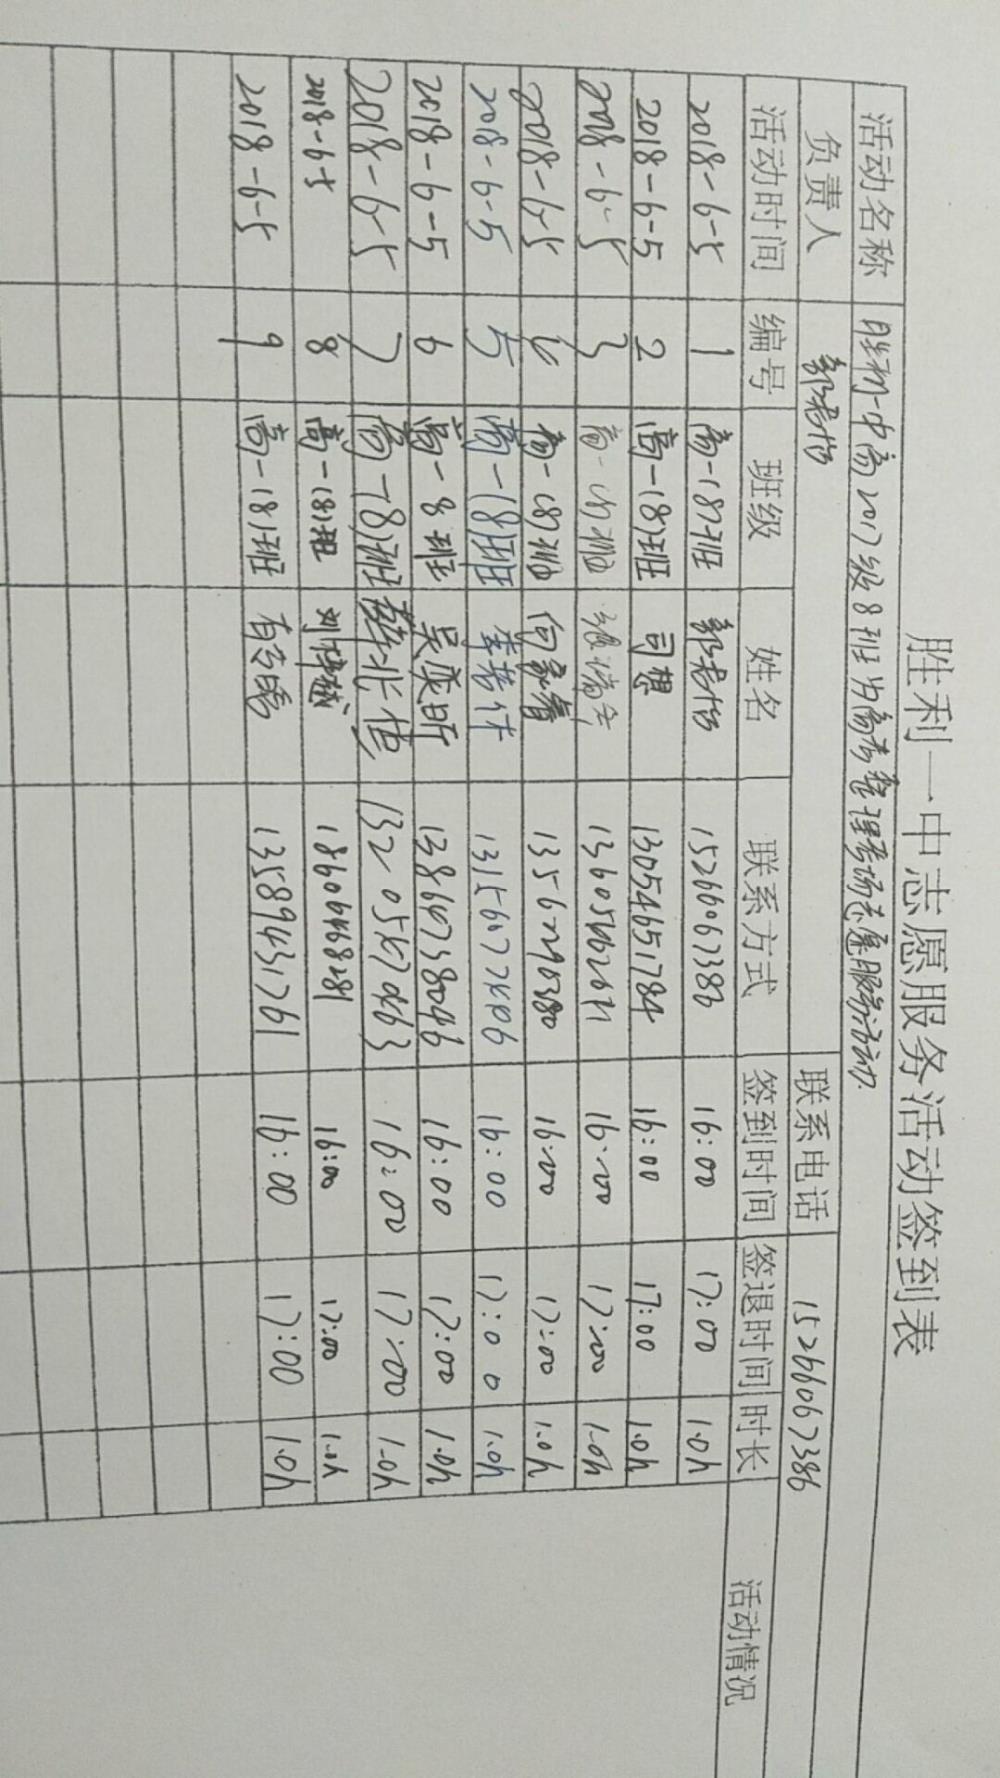 胜利一中志愿服务活动签到表
活动名称 胜利一中高2017级8班为高考整理考场志愿服务活动
负责人 联系电话 15266067386
活动时间 编号 班级 姓名 联系方式 签到时间 签退时间 时长 活动情况
2018-6-5 1 高一(8)班 15266067386 16:00 17:00 1.0h
2018-6-5 2 高一(8)班 司想 13054651784 16:00 17:00 1.0h
2018-6-5 3 高一(8)班 16:00 17:00 1.0h
2018-6-5 高一(8)班 16:00 17:00 1.0h
2018-6-5 5 高一(8)班 16:00 17:00 1.0h
2018-6-5 6 高一8班 吴奕昕 13864738046 16:00 17:00 1.0h
2018-6-5 7 高一(8)班 16:00 17:00 1.0h
2018-6-5 8 高一(8)班 18606468281 16:00 17:00 1.0h
2018-6-5 9 高一(8)班 13589431761 16:00 17:00 1.0h